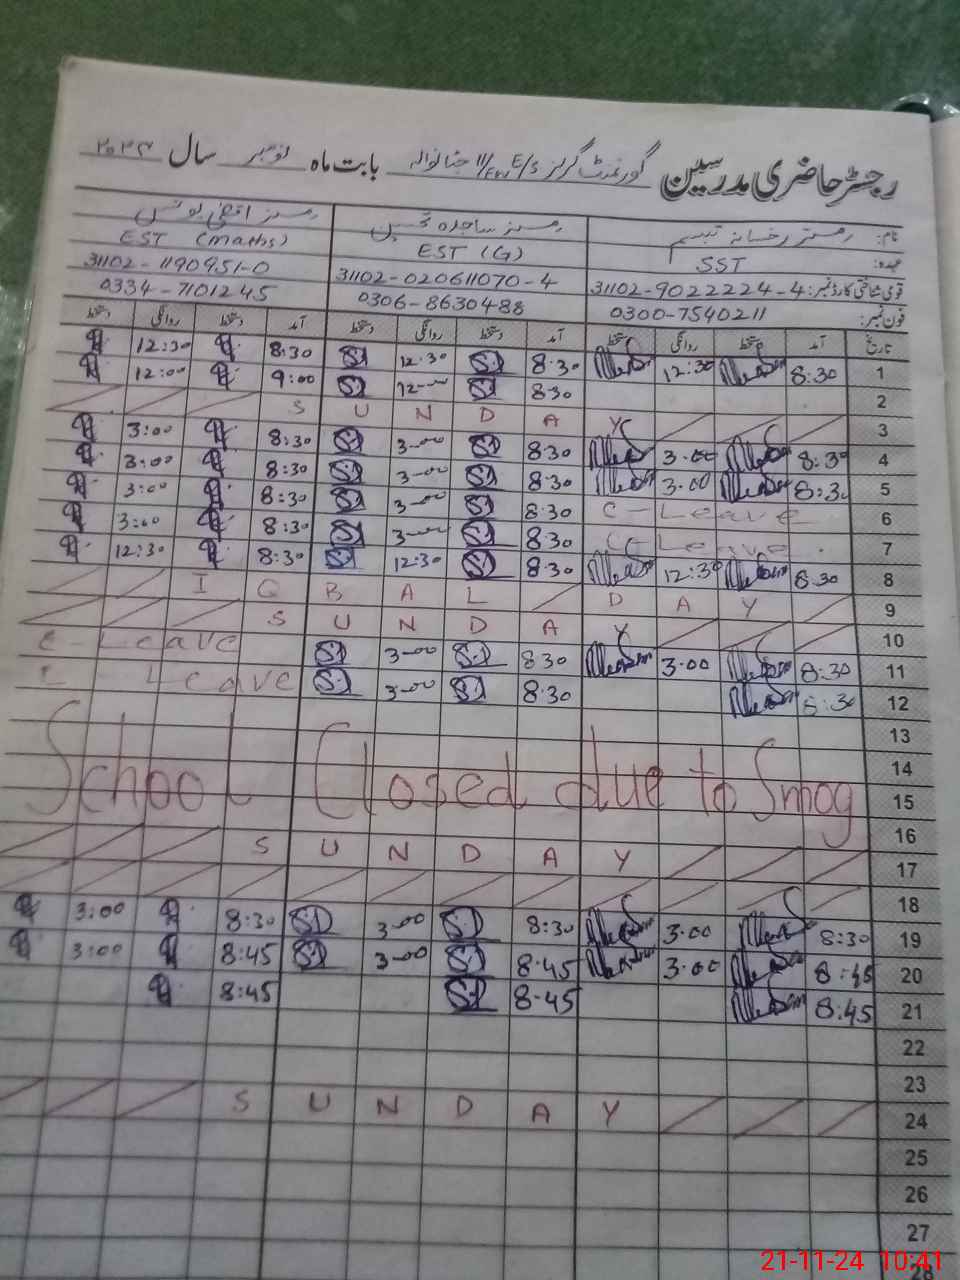 رجسٹر حاضری مدرسین گورنمنٹ گرلز E/S جنانوالہ بابت ماہ نومبر سال ۲۰۲۴
نام: رخسانہ تبسم مسز ساجدہ مسز
عہدہ: SST EST (G) EST (Maths)
قومی شناختی کارڈ نمبر: 31102-9022224-4 31102-020611070-4 31102-1190951-0
فون نمبر: 0300-7540211 0306-8630488 0334-7101245
تاریخ آمد دستخط روانگی دستخط آمد دستخط روانگی دستخط آمد دستخط روانگی دستخط
1 8:30 12:30 8:30 12:30 8:30 12:30
2 8:30 12-00 9:00 12:00
3 S U N D A Y
4 8:30 3:00 8:30 3-00 8:30 3:00
5 8:30 3:00 8:30 3-00 8:30 3:00
6 C-Leave 8:30 3-00 8:30 3:00
7 C-Leave 8:30 3-00 8:30 3:00
8 8:30 12:30 8:30 12:30 8:30 12:30
9 I Q B A L D A Y
10 S U N D A Y
11 8:30 3:00 8:30 3-00 C-Leave
12 8:30 8:30 3-00 Leave
13
14
School Closed due to Smog
15
16
17 S U N D A Y
18
19 8:30 3:00 8:30 3-00 8:30 3:00
20 8:45 3:00 8:45 3-00 8:45 3:00
21 8:45 8:45 8:45
22
23
24 S U N D A Y
25
26
27
28
21-11-24 10:41